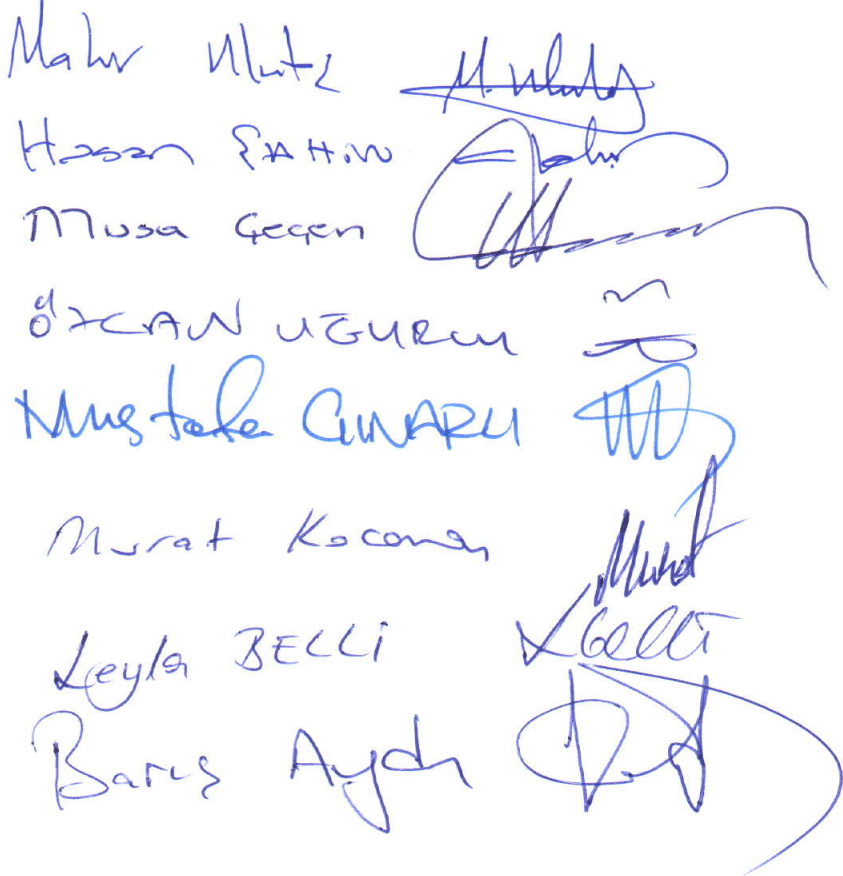 Mahir Ulutaş M. Ulutaş
Hasan ŞAHİN
Musa Çeçen
ÖZCAN UĞURLU
Mustafa ÇINARLI
Murat Kocaman Murat
Leyla BELLİ LBelli
Barış Aydın